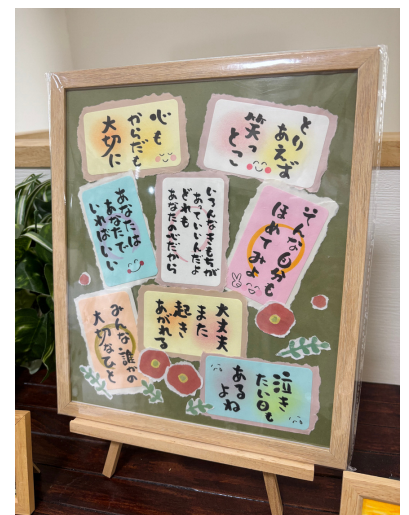 とりあえず
笑っ
とこ
心も
からだも
大切に
そんな自分も
ほめてみよ
いろんなきもちが
あっていいんだよ
どれも
あなたの心だから
あなたは
あなたで
いればいい
大丈夫
また
起き
あがれる
みんな誰かの
大切なひと
泣き
たい日も
あるよね